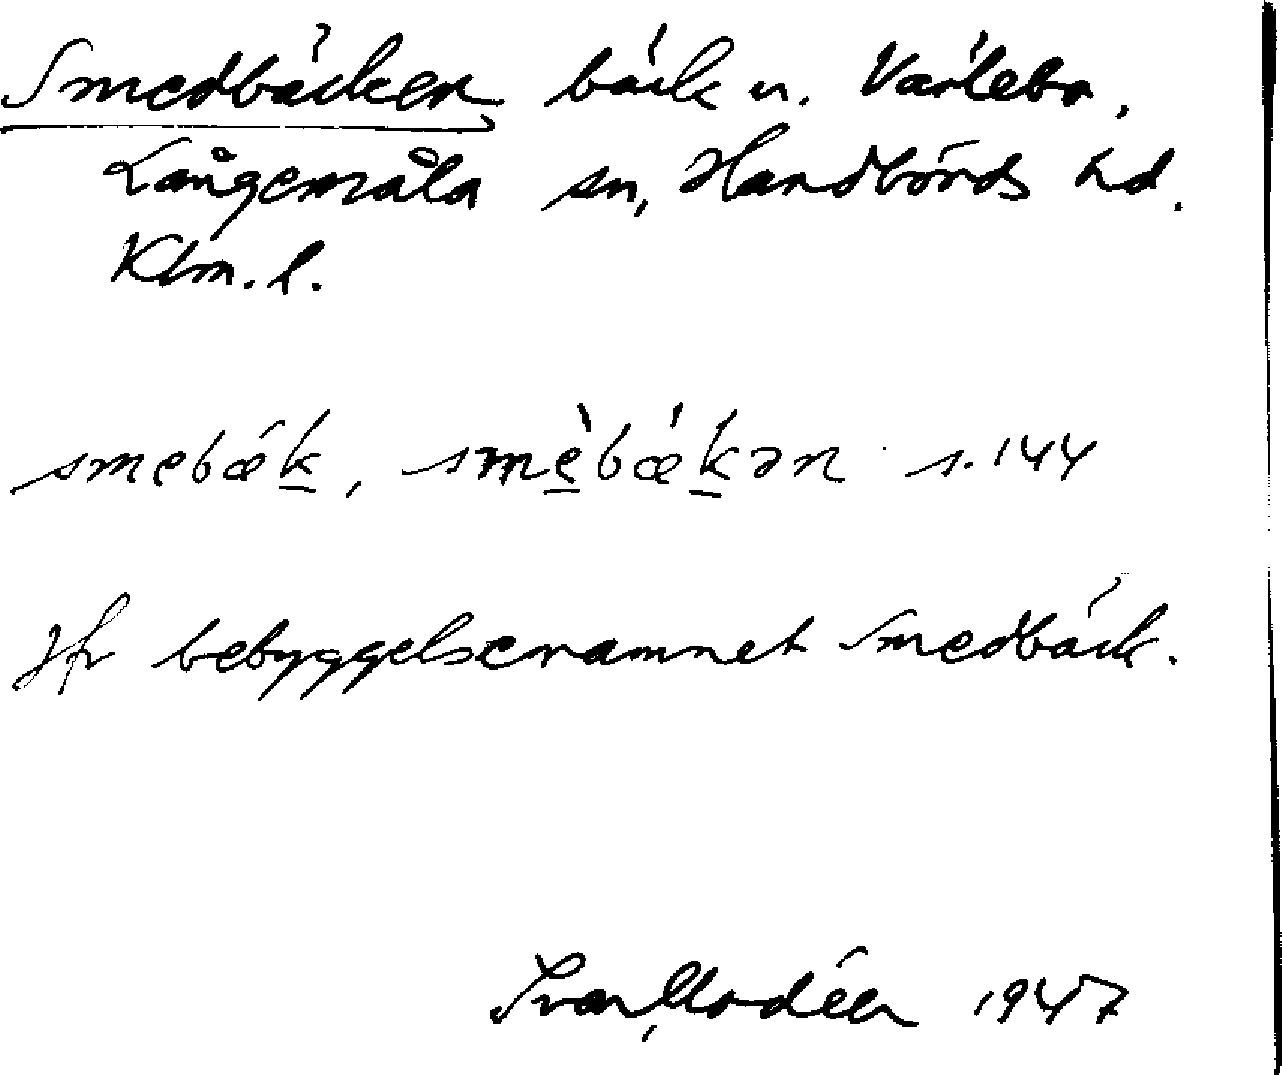 Smedbäcken bäck n. Värlebo,
Långemåla sn, Handbörds hd.
Klm. l.
smebǽk, smè̱bæ̀ḵən s. 144
Jfr bebyggelsenamnet Smedbäck.
Ivar Modéer 1947